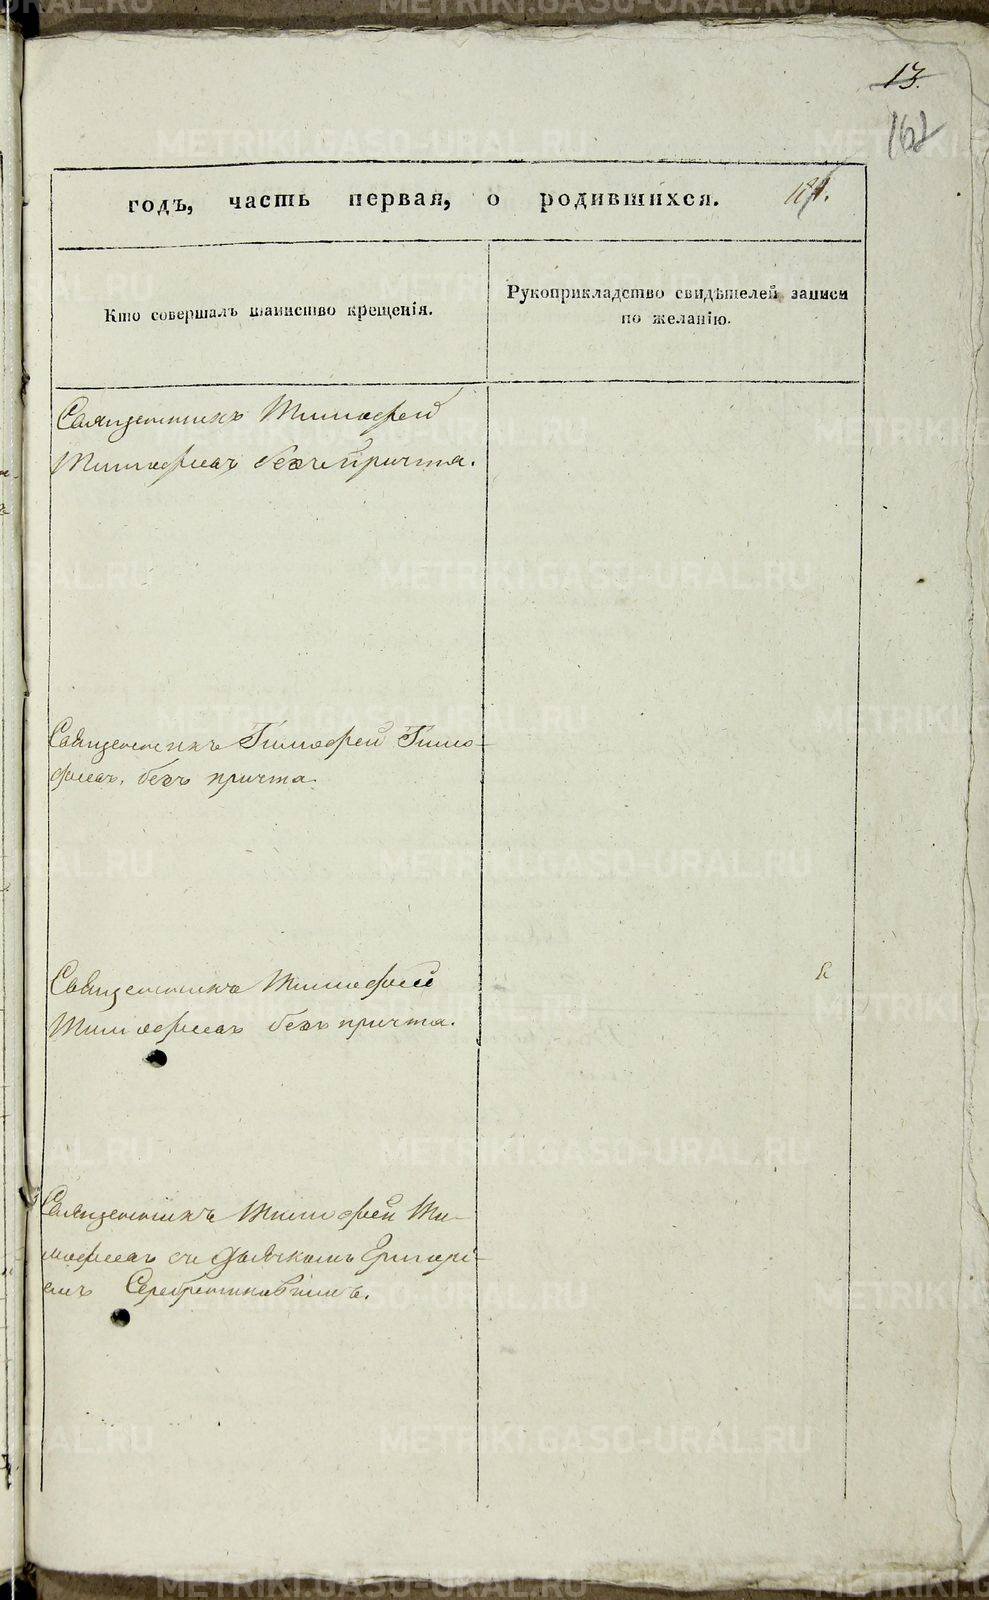 13.
162
годъ, часть первая, о родившихся.
Кто совершалъ таинство крещенія.
Рукоприкладство свидѣтелей записи
по желанію.
Священникъ Тимофей
Тимофеевъ безъ причта.
Священникъ Тимофей Тимо-
феевъ, безъ причта.
Священникъ Тимофей
Тимофеевъ безъ причта.
Священникъ Тимофей Ти-
мофеевъ съ дьячкомъ Григорі-
емъ Серебренниковымъ.
METRIKI.GASO-URAL.RU